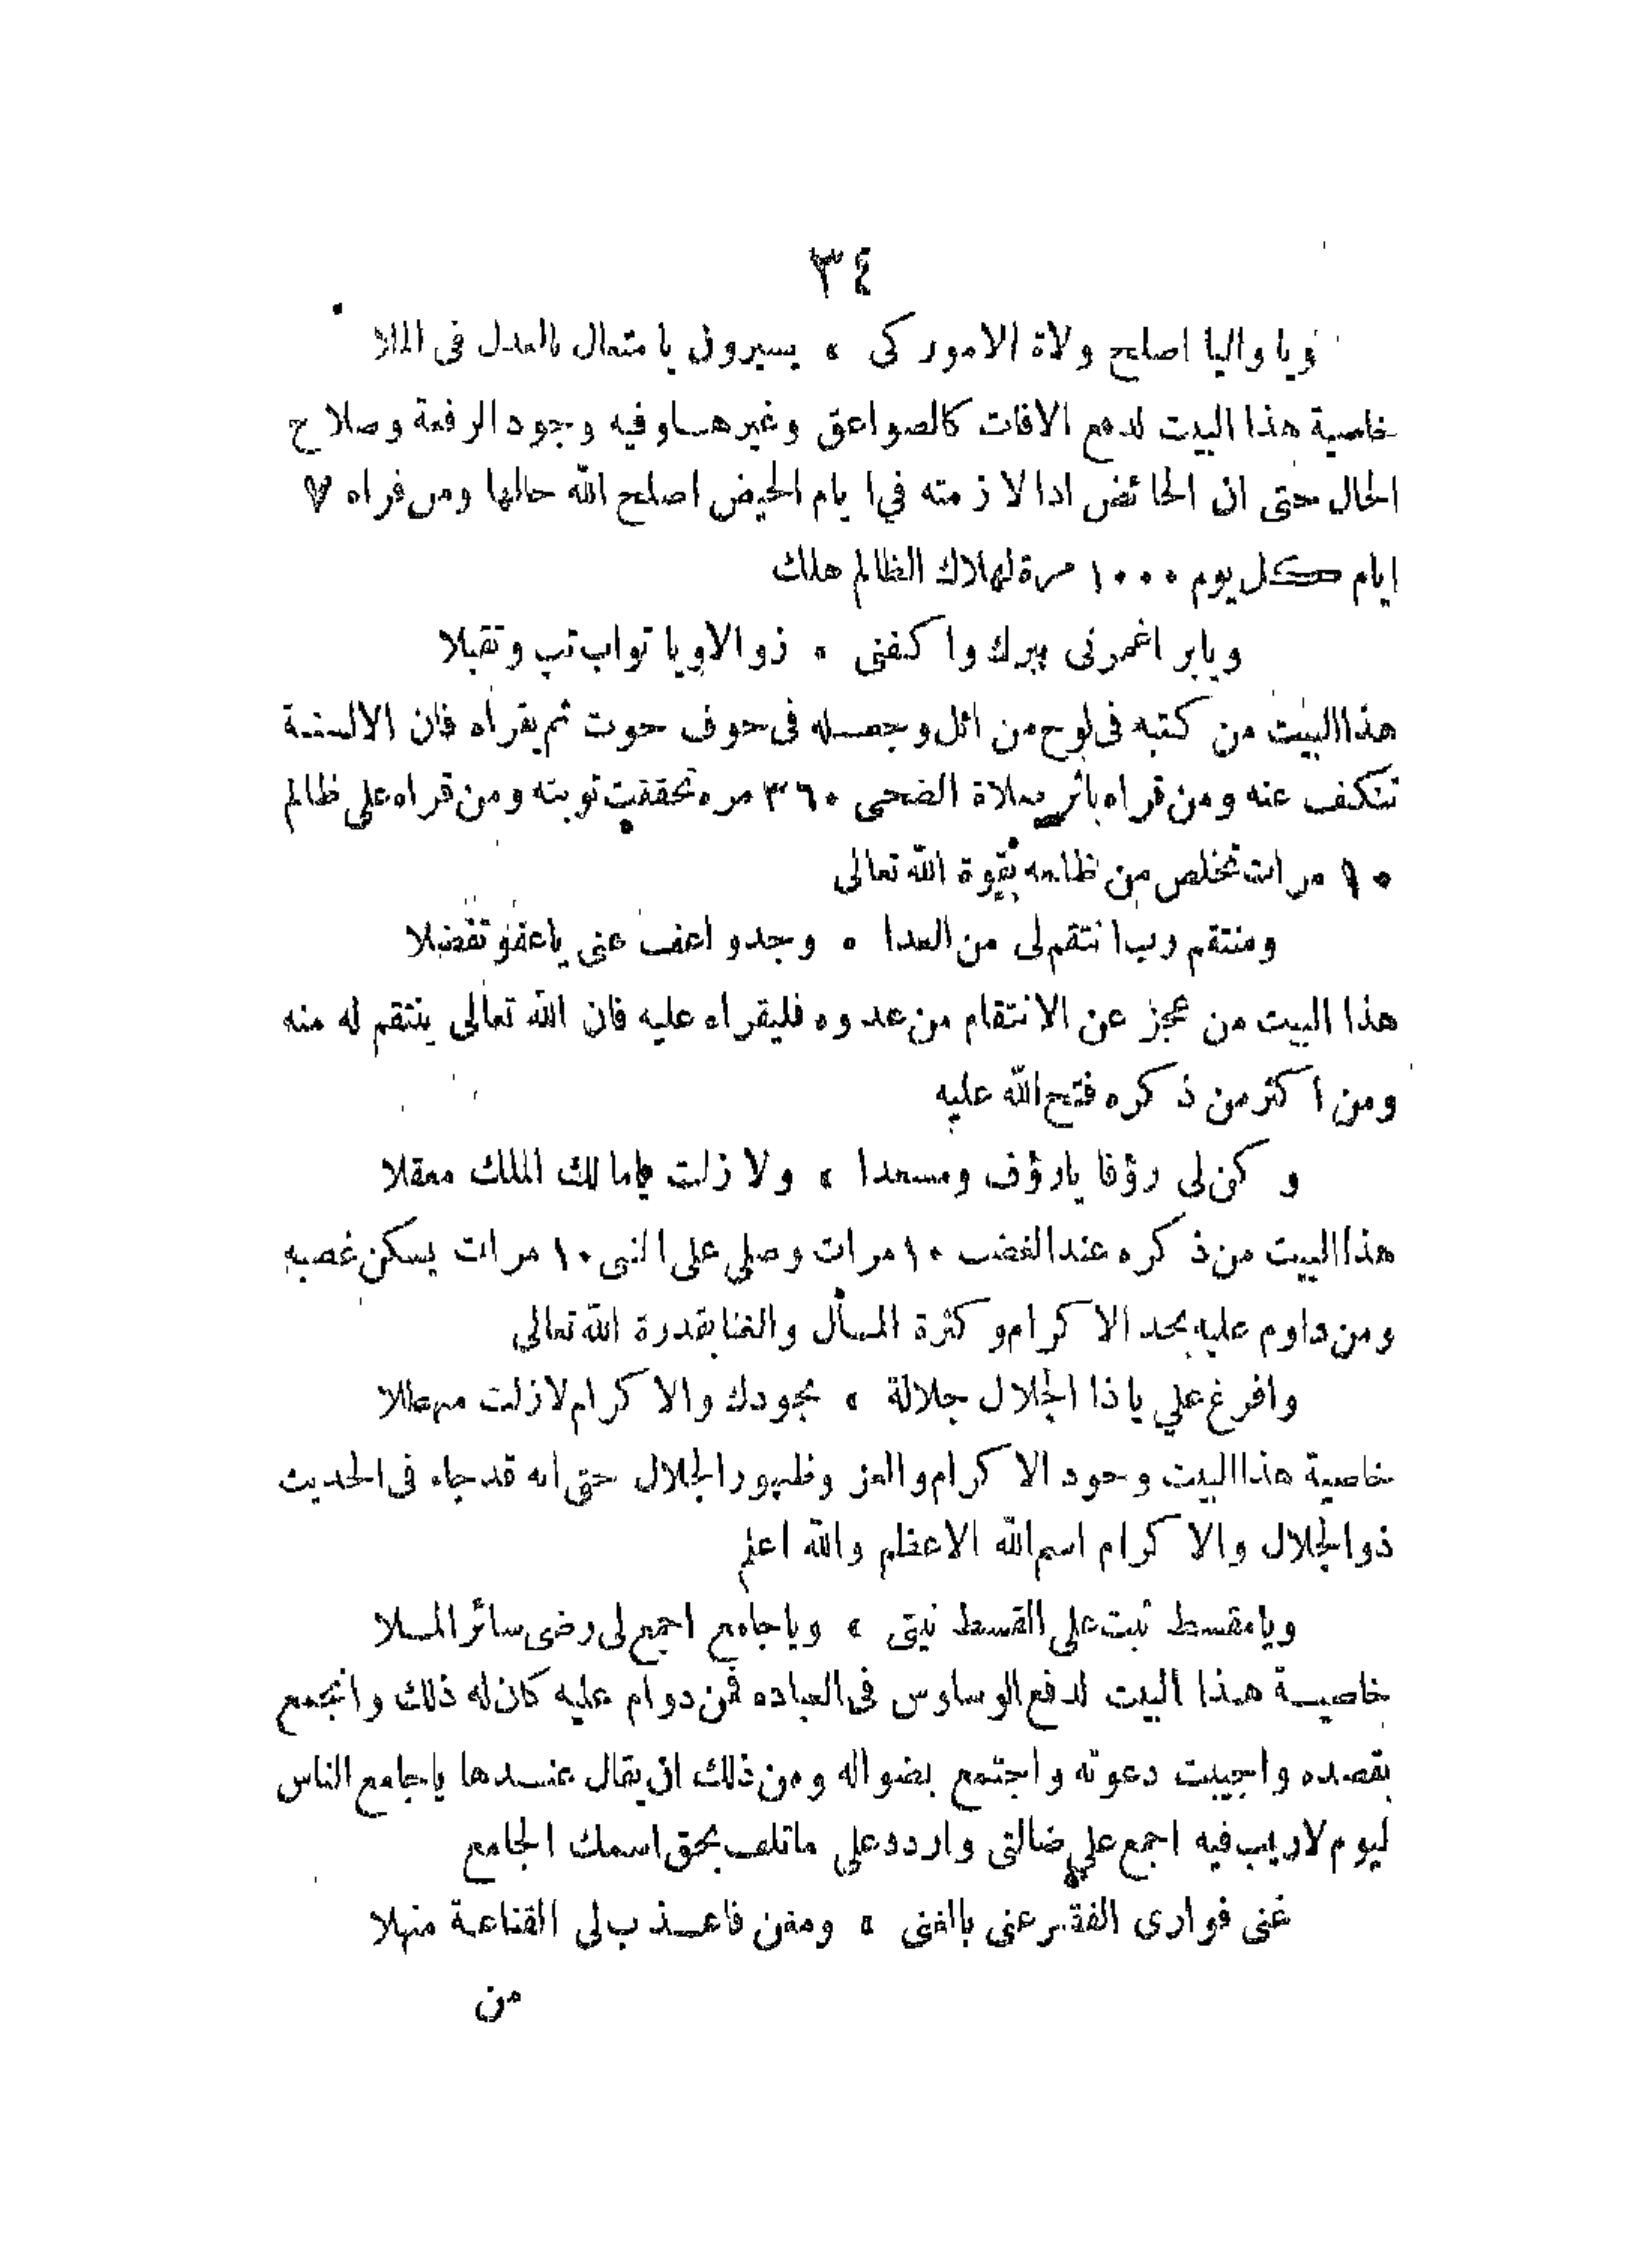 ٣٤
ويا واليا اصلح ولاة الامور كى * يسيرون يا متعال بالعدل فى الملا
خاصية هذا البيت لدفع الافات كالصواعق وغيرها وفيه وجود الرفعة وصلاح
الحال حتى ان الحائض اذا لازمته في ايام الحيض اصلح الله حالها ومن قراه ٧
ايام كل يوم ١٠٠٠ مرة لهلاك الظالم هلك
ويابر اغمرنى ببرك واكفنى * ذوالا ويا تواب تب وتقبلا
هذا البيت من كتبه فى لوح من اثل وجعله فى جوف حوت ثم يقرأه فان الالسنة
تنكف عنه ومن قراه باثر صلاة الضحى ٣٦٠ مره تحققت توبته ومن قراه على ظالم
١٠ مرات تخلص من ظلمه بقوة الله تعالى
ومنتقم رب انتقم لى من العدا * وجد واعف عنى ياعفو تفضلا
هذا البيت من عجز عن الانتقام من عدوه فليقراه عليه فان الله تعالى ينتقم له منه
ومن اكثر من ذكره فتح الله عليه
وكن لى رؤفا يارؤف ومسعدا * ولا زلت يامالك الملك معقلا
هذا البيت من ذكره عند الغضب ١٠ مرات وصلى على النبى ١٠ مرات يسكن غضبه
ومن داوم عليه يجد الاكرام وكثرة المال والغنا بقدرة الله تعالى
وافرغ علي ياذا الجلال جلالة * بجودك والاكرام لازلت مهطلا
خاصية هذا البيت وجود الاكرام والعز وظهور الجلال حتى انه قد جاء فى الحديث
ذوالجلال والاكرام اسم الله الاعظم والله اعلم
ويامقسط ثبت على القسط نيتى * وياجامع اجمع لى رضى سائر الملا
خاصية هذا البيت لدفع الوساوس فى العباده فمن دوام عليه كان له ذلك وانجمع
بقصده واجيبت دعوته واجتمع بضواله ومن ذلك ان يقال عندها ياجامع الناس
ليوم لاريب فيه اجمع علي ضالتى واردد على ماتلف بحق اسمك الجامع
غنى فوارى الفقر عنى بالغنى * ومغن فاعذب لى القناعة منهلا
من